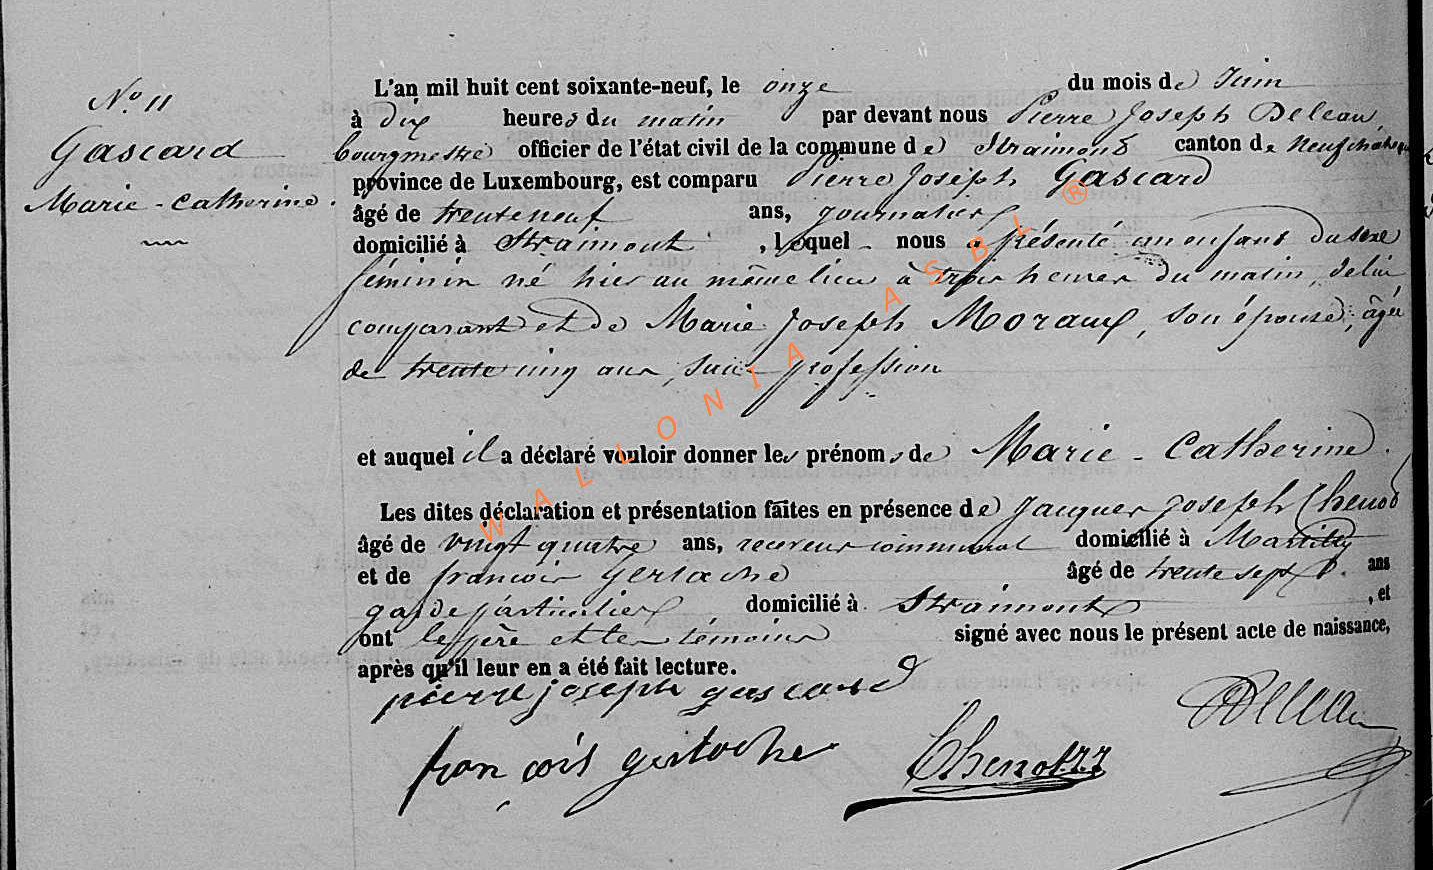 N.o 11
Gascard
Marie-Catherine.
L'an mil huit cent soixante-neuf, le onze du mois de Juin
à dix heures du matin par devant nous Pierre Joseph Deleau,
bourgmestre officier de l'état civil de la commune de Straimont canton de Neufchâteau
province de Luxembourg, est comparu Pierre Joseph Gascard
âgé de trente neuf ans, journalier
domicilié à Straimont, lequel nous a présenté un enfant du sexe
féminin né hier au même lieu à trois heures du matin, de lui
comparant et de Marie Joseph Moraux, son épouse, âgée
de trente cinq ans, sans profession
et auquel il a déclaré vouloir donner les prénoms de Marie-Catherine.
Les dites déclaration et présentation faites en présence de Jacques Joseph Thenot
âgé de vingt quatre ans, receveur communal domicilié à Martilly
et de françois Gerlache âgé de trente sept ans
garde particulier domicilié à Straimont, et
ont le père et les témoins signé avec nous le présent acte de naissance,
après qu'il leur en a été fait lecture.
pierre joseph gascard
Deleau
françois gerlache
Thenot JJ
WALLONIA ASBL ®